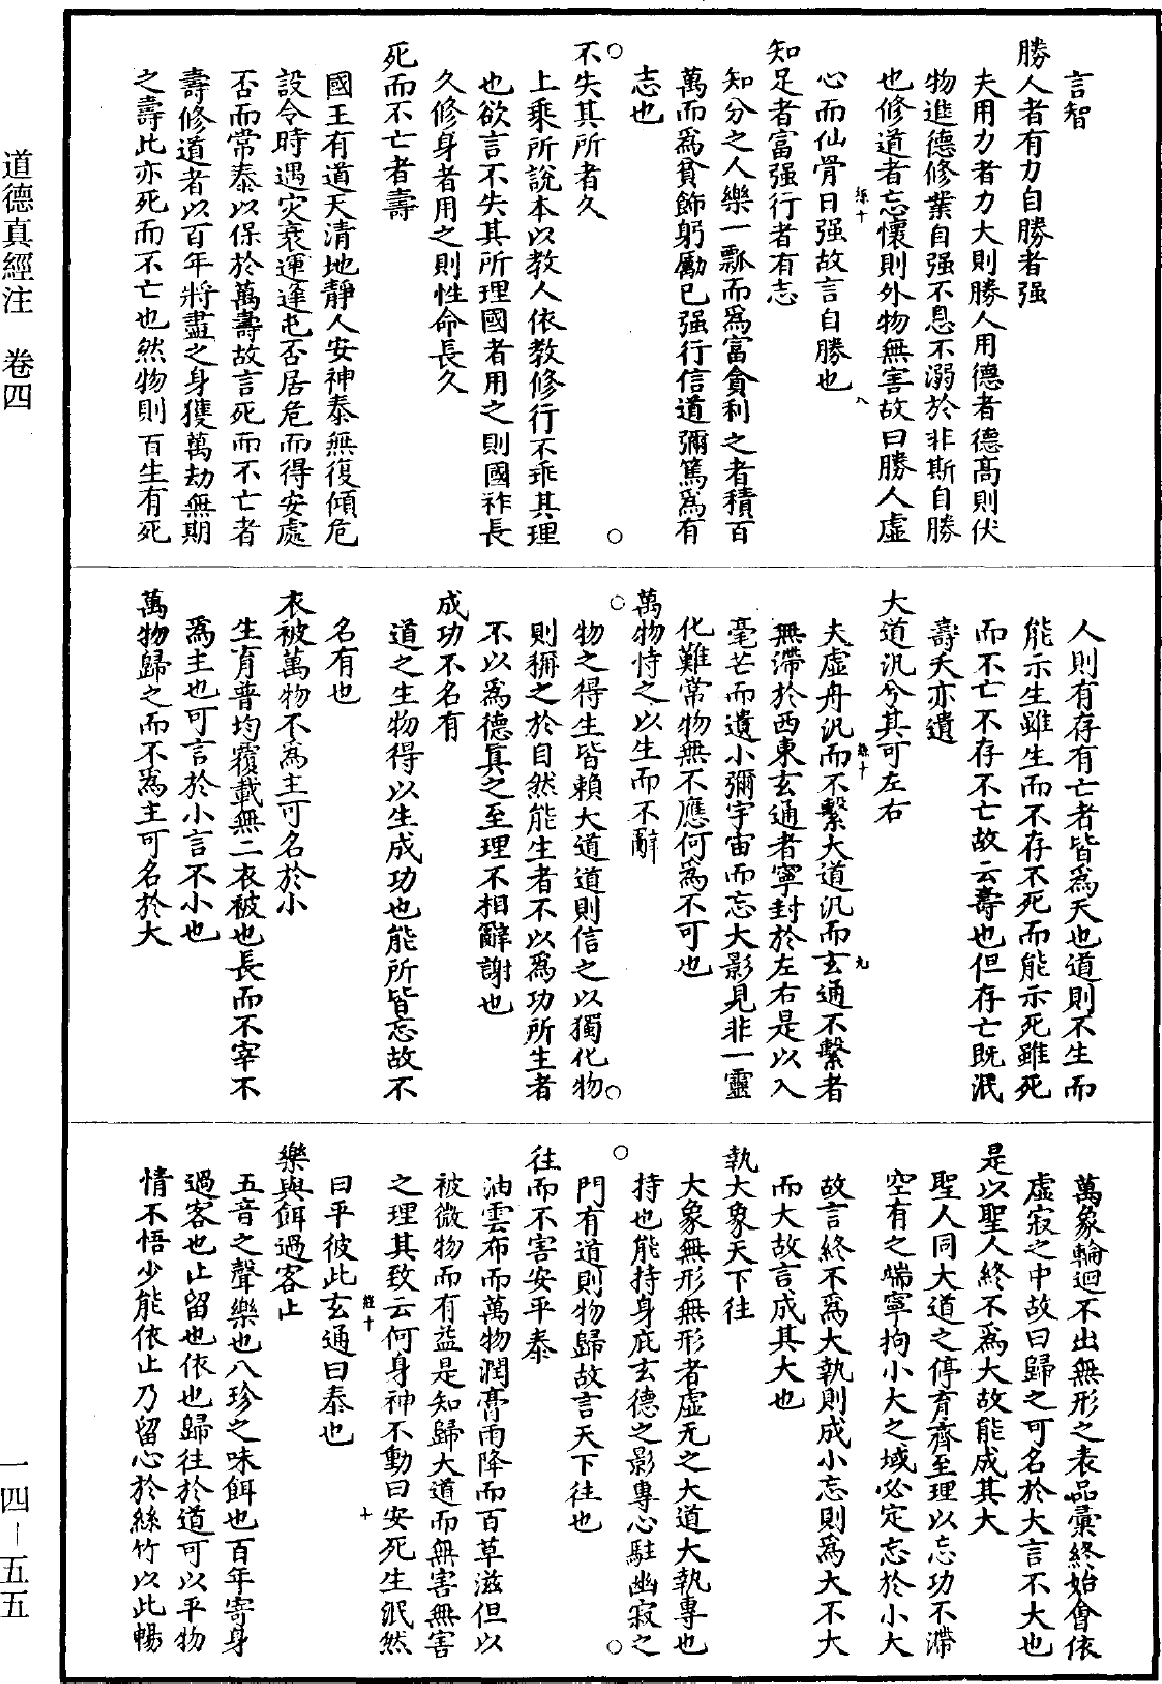 言智
勝人者有力自勝者强
夫用力者力大則勝人用德者德高則伏
物進德修業自强不息不溺於非斯自勝
也修道者忘懷則外物無害故曰勝人虛
心而仙骨日强故言自勝也
八
知足者富强行者有志
知分之人樂一瓢而爲富貪利之者積百
萬而爲貧飾躬勵己强行信道彌篤爲有
志也
不失其所者久
上乘所說本以教人依教修行不乖其理
也欲言不失其所理國者用之則國祚長
久修身者用之則性命長久
死而不亡者壽
國王有道天清地靜人安神泰無復傾危
設令時遇灾衰運逢屯否居危而得安處
否而常泰以保於萬壽故言死而不亡者
壽修道者以百年將盡之身獲萬劫無期
之壽此亦死而不亡也然物則百生有死
人則有存有亡者皆爲夭也道則不生而
能示生雖生而不存不死而能示死雖死
而不亡不存不亡故云壽也但存亡既泯
壽夭亦遺
大道汎兮其可左右
夫虛舟汎而不繫大道汎而玄通不繫者
九
無滯於西東玄通者寧封於左右是以入
毫芒而遺小彌宇宙而忘大影見非一靈
化難常物無不應何爲不可也
萬物恃之以生而不辭
物之得生皆賴大道道則信之以獨化物
則稱之於自然能生者不以爲功所生者
不以爲德冥之至理不相辭謝也
成功不名有
道之生物得以生成功也能所皆忘故不
名有也
衣被萬物不爲主可名於小
生育普均覆載無二衣被也長而不宰不
爲主也可言於小言不小也
萬物歸之而不爲主可名於大
萬象輪迴不出無形之表品彙終始會依
虛寂之中故曰歸之可名於大言不大也
是以聖人終不爲大故能成其大
聖人同大道之停育齊至理以忘功不滯
空有之端寧拘小大之域必定忘於小大
故言終不爲大執則成小忘則爲大不大
而大故言成其大也
執大象天下往
大象無形無形者虛无之大道大執專也
持也能持身庇玄德之影專心駐幽寂之
門有道則物歸故言天下往也
往而不害安平泰
油雲布而萬物潤膏雨降而百草滋但以
被微物而有益是知歸大道而無害無害
之理其致云何身神不動曰安死生泯然
十
曰平彼此玄通曰泰也
樂與餌過客止
五音之聲樂也八珍之味餌也百年寄身
過客也止留也依也歸往於道可以平物
情不悟少能依止乃留心於絲竹以此暢
道德真經注 卷四
一四—五五